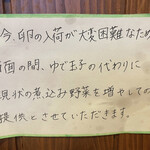 今、卵の入荷が大変困難なため
当面の間、ゆで玉子の代わりに
現状の煮込み野菜を増やしての
提供とさせていただきます。